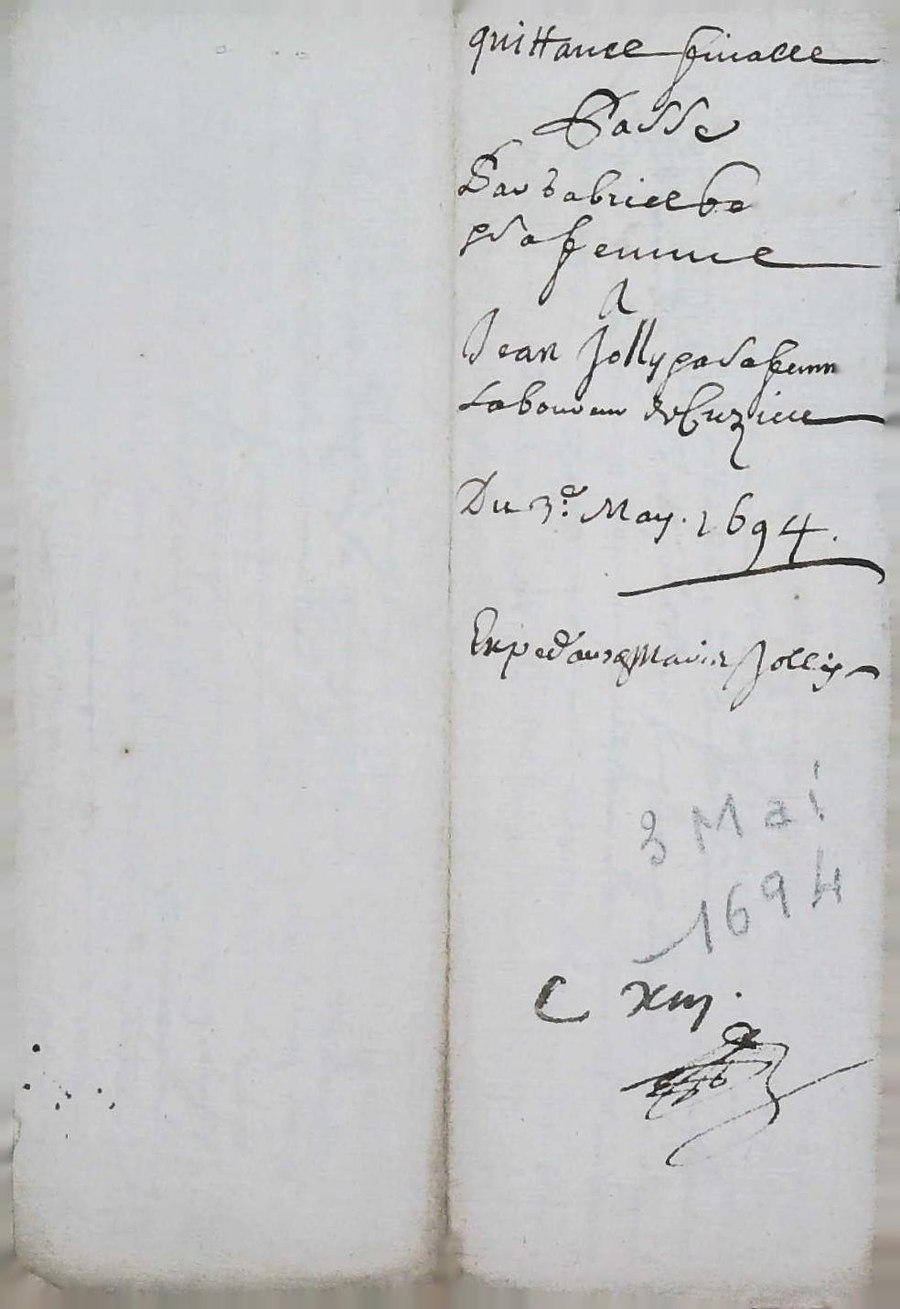 quittance finalle
Passé
Par Gabriel
& sa femme
A
Jean Jolly & a sa femm
Laboureur de Cuzieu
Du 3e. May. 1694.
Exped Marie Jolly
3 Mai
1694
C xiij.